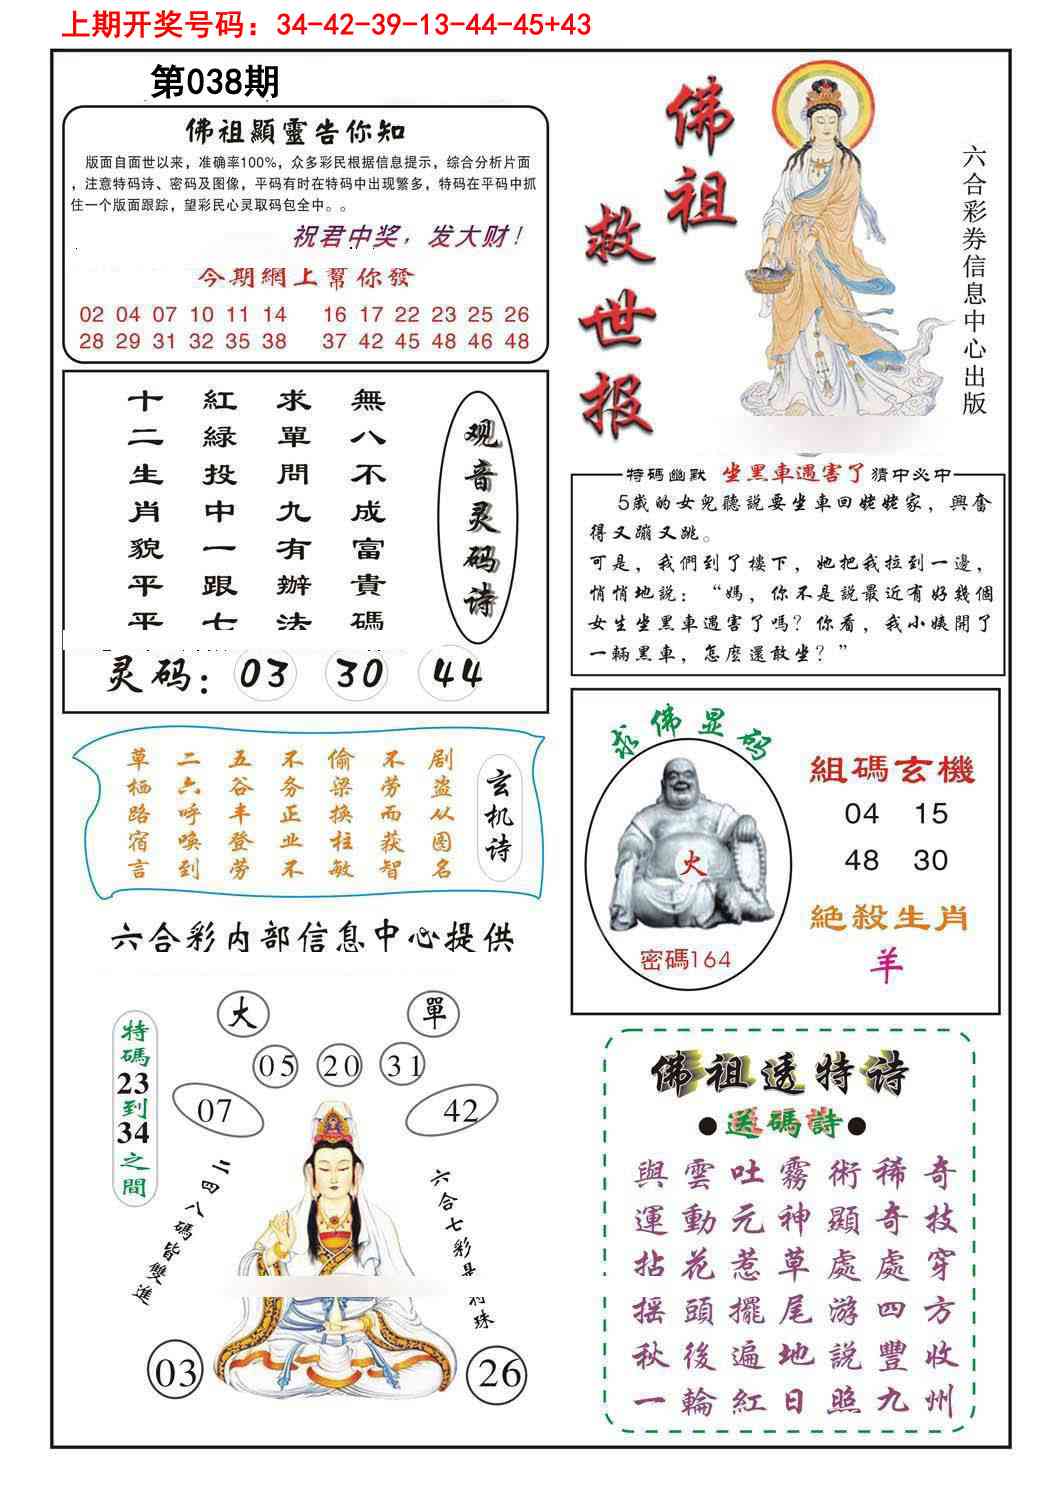 上期开奖号码：34-42-39-13-44-45+43
第038期
佛祖顯靈告你知
版面自面世以来，准确率100%，众多彩民根据信息提示，综合分析片面
，注意特码诗、密码及图像，平码有时在特码中出现繁多，特码在平码中抓
住一个版面跟踪，望彩民心灵取码包全中。。
祝君中奖，发大财！
今期網上幫你發
02 04 07 10 11 14 16 17 22 23 25 26
28 29 31 32 35 38 37 42 45 48 46 48
佛祖
救世报
六合彩券信息中心出版
無八不成富貴碼
求單問九有辦法
紅緑投中一跟七
十二生肖貌平平
观音灵码诗
灵码：03 30 44
特碼幽默 坐黑車遇害了 猜中必中
5歲的女兒聽説要坐車回姥姥家，興奮
得又蹦又跳。
可是，我們到了樓下，她把我拉到一邊，
悄悄地説：“媽，你不是説最近有好幾個
女生坐黑車遇害了嗎？你看，我小姨開了
一輛黑車，怎麽還敢坐？”
玄机诗
剧盗从图名
不劳而获智
偷梁换柱敏
不务正业不
五谷丰登劳
二六呼唤到
草栖路宿言
求佛显码
火
密碼164
組碼玄機
04 15
48 30
絶殺生肖
羊
六合彩内部信息中心提供
大 單
05 20 31
07 42
特碼23到34之間
二四八碼皆雙進
六合七彩是特珠
03 26
佛祖透特诗
●送碼詩●
與雲吐霧術稀奇
運動元神顯奇技
拈花惹草處處穿
摇頭擺尾游四方
秋後遍地説豐收
一輪紅日照九州